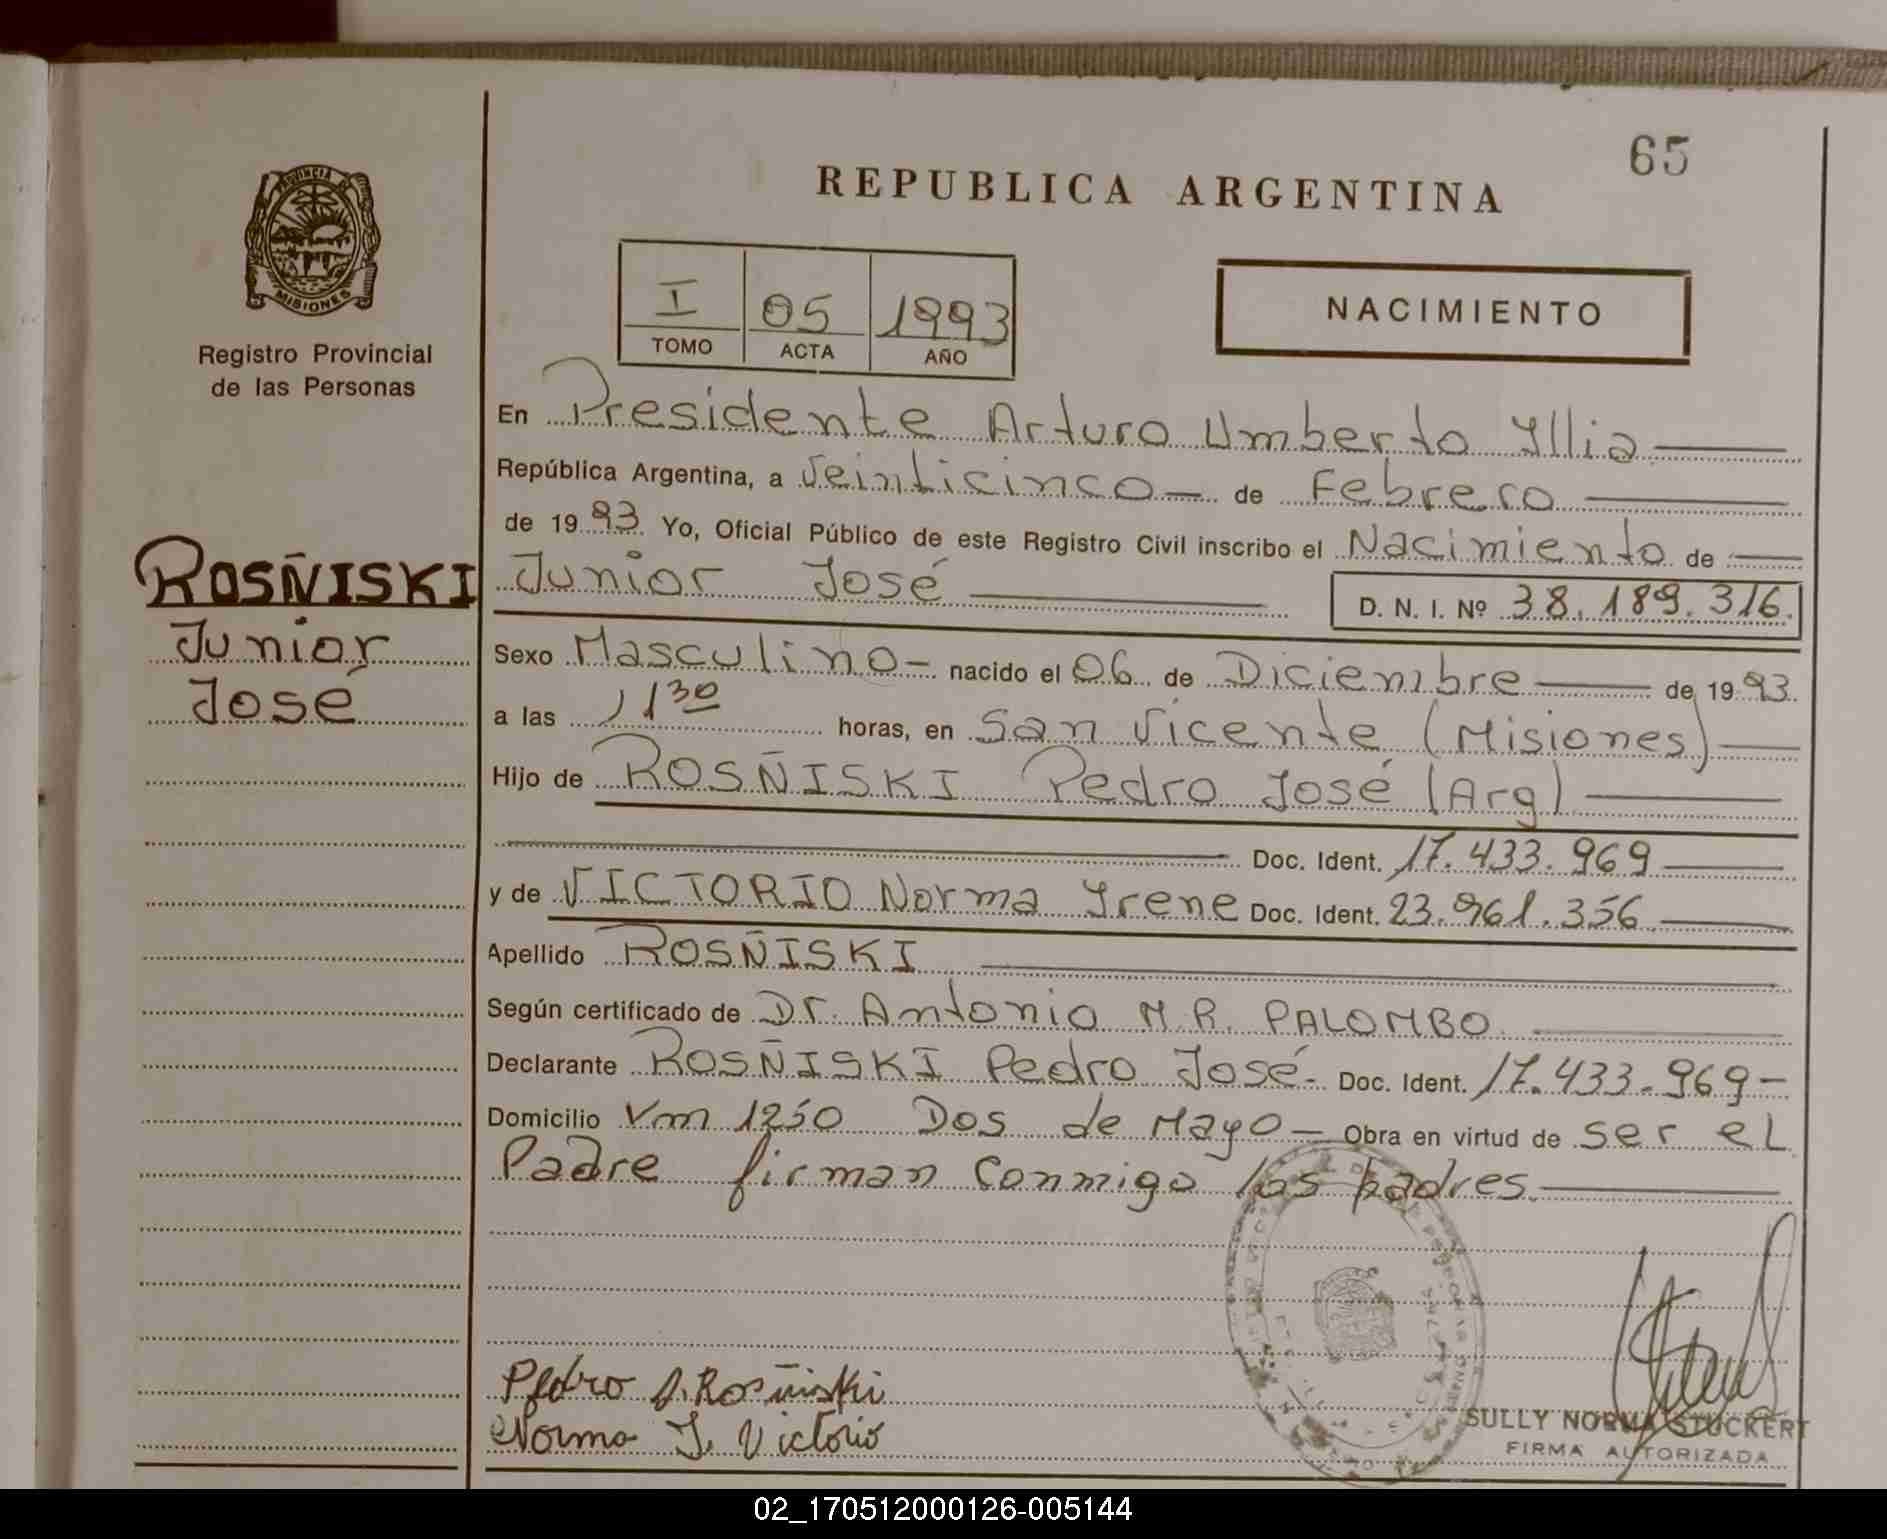 65
REPUBLICA ARGENTINA
PROVINCIA DE
MISIONES
Registro Provincial
de las Personas
I 05 1993
TOMO ACTA AÑO
NACIMIENTO
En Presidente Arturo Umberto Illia
República Argentina, a Veinticinco de Febrero
de 1993 Yo, Oficial Público de este Registro Civil inscribo el Nacimiento de
Junior José D. N. I. Nº 38.189.316.
ROSÑISKI
Junior
José
Sexo Masculino nacido el 06 de Diciembre de 1993
a las 11 30 horas, en San Vicente (Misiones)
Hijo de ROSÑISKI Pedro José (Arg)
Doc. Ident. 17.433.969
y de VICTORIO Norma Irene Doc. Ident. 23.961.356
Apellido ROSÑISKI
Según certificado de Dr. Antonio M R. PALOMBO
Declarante ROSÑISKI Pedro José. Doc. Ident. 17.433.969
Domicilio Km 1250 Dos de Mayo Obra en virtud de ser el
Padre firman conmigo los padres.
Pedro J. Rosñiski
Norma I. Victorio
SULLY NORMA STUCKERT
FIRMA AUTORIZADA
02_170512000126-005144